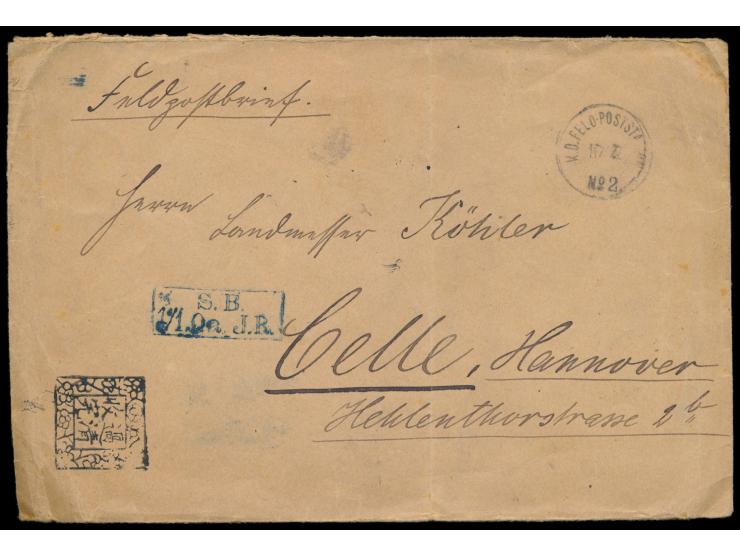 Feldpostbrief.
K.D. FELD-POSTSTA
No 2
Herrn
Landmesser Köhler
S. B.
1/1.Oa. J.R.
Celle, Hannover
Hehlenthorstrasse 2b